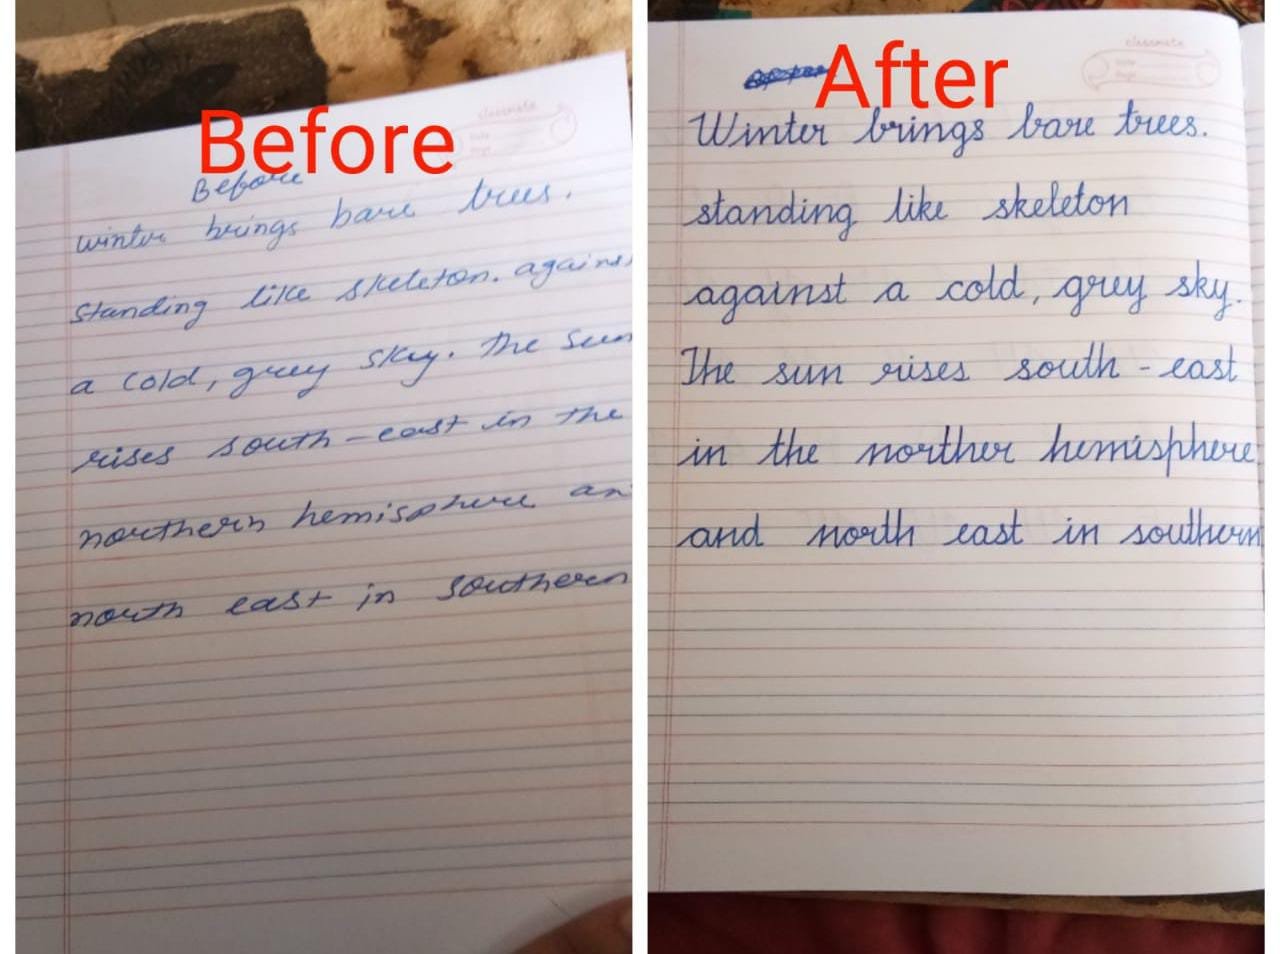 Before
classmate
Date
Page
Before
winter brings bare trees.
standing like skeleton. against
a cold, grey sky. The sun
rises south-east in the
northern hemisphere an
north east in southern
After
classmate
Date
Page
Winter brings bare trees.
standing like skeleton
against a cold, grey sky.
The sun rises south-east
in the norther hemisphere
and north east in southern